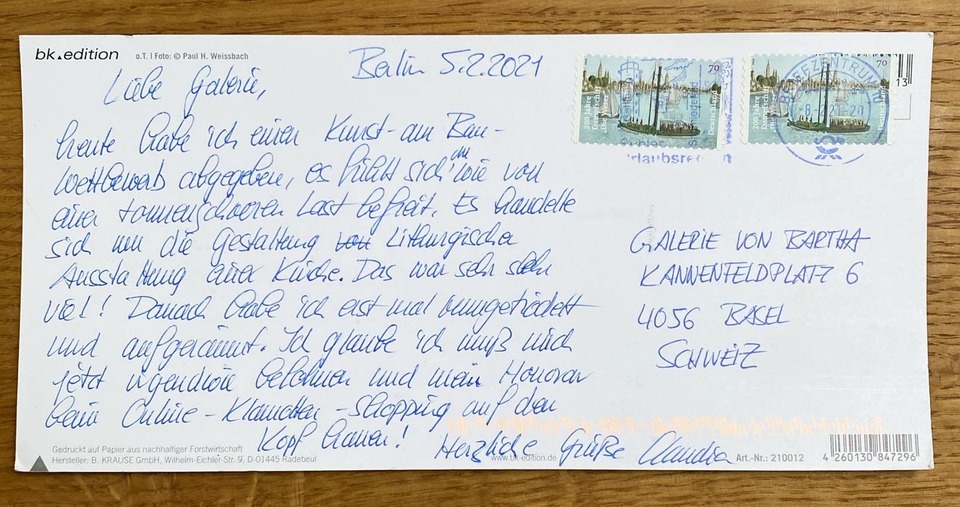 bk.edition
o.T. I Foto: © Paul H. Weissbach
Berlin 5.2.2021
Liebe Galerie,
heute habe ich einen Kunst-am Bau-
Wettbewerb abgegeben, es fühlt sich an wie von
einer tonnenschweren Last befreit. Es handelte
sich um die Gestaltung von Liturgischer
Ausstattung einer Kirche. Das war sehr sehr
viel! Danach habe ich erst mal rumgetrödelt
und aufgeräumt. Ich glaube ich muß mich
jetzt irgendwie belohnen und mein Honorar
beim Online-Klamotten-Shopping auf den
Kopf hauen! Herzliche Grüße Claudia
70
70
BRIEFZENTRUM
13
GALERIE VON BARTHA
KANNENFELDPLATZ 6
4056 BASEL
SCHWEIZ
Gedruckt auf Papier aus nachhaltiger Forstwirtschaft
Hersteller: B. KRAUSE GmbH, Wilhelm-Eichler-Str. 9, D-01445 Radebeul
www.bk-edition.de
Art.-Nr.: 210012
4 260130 847296